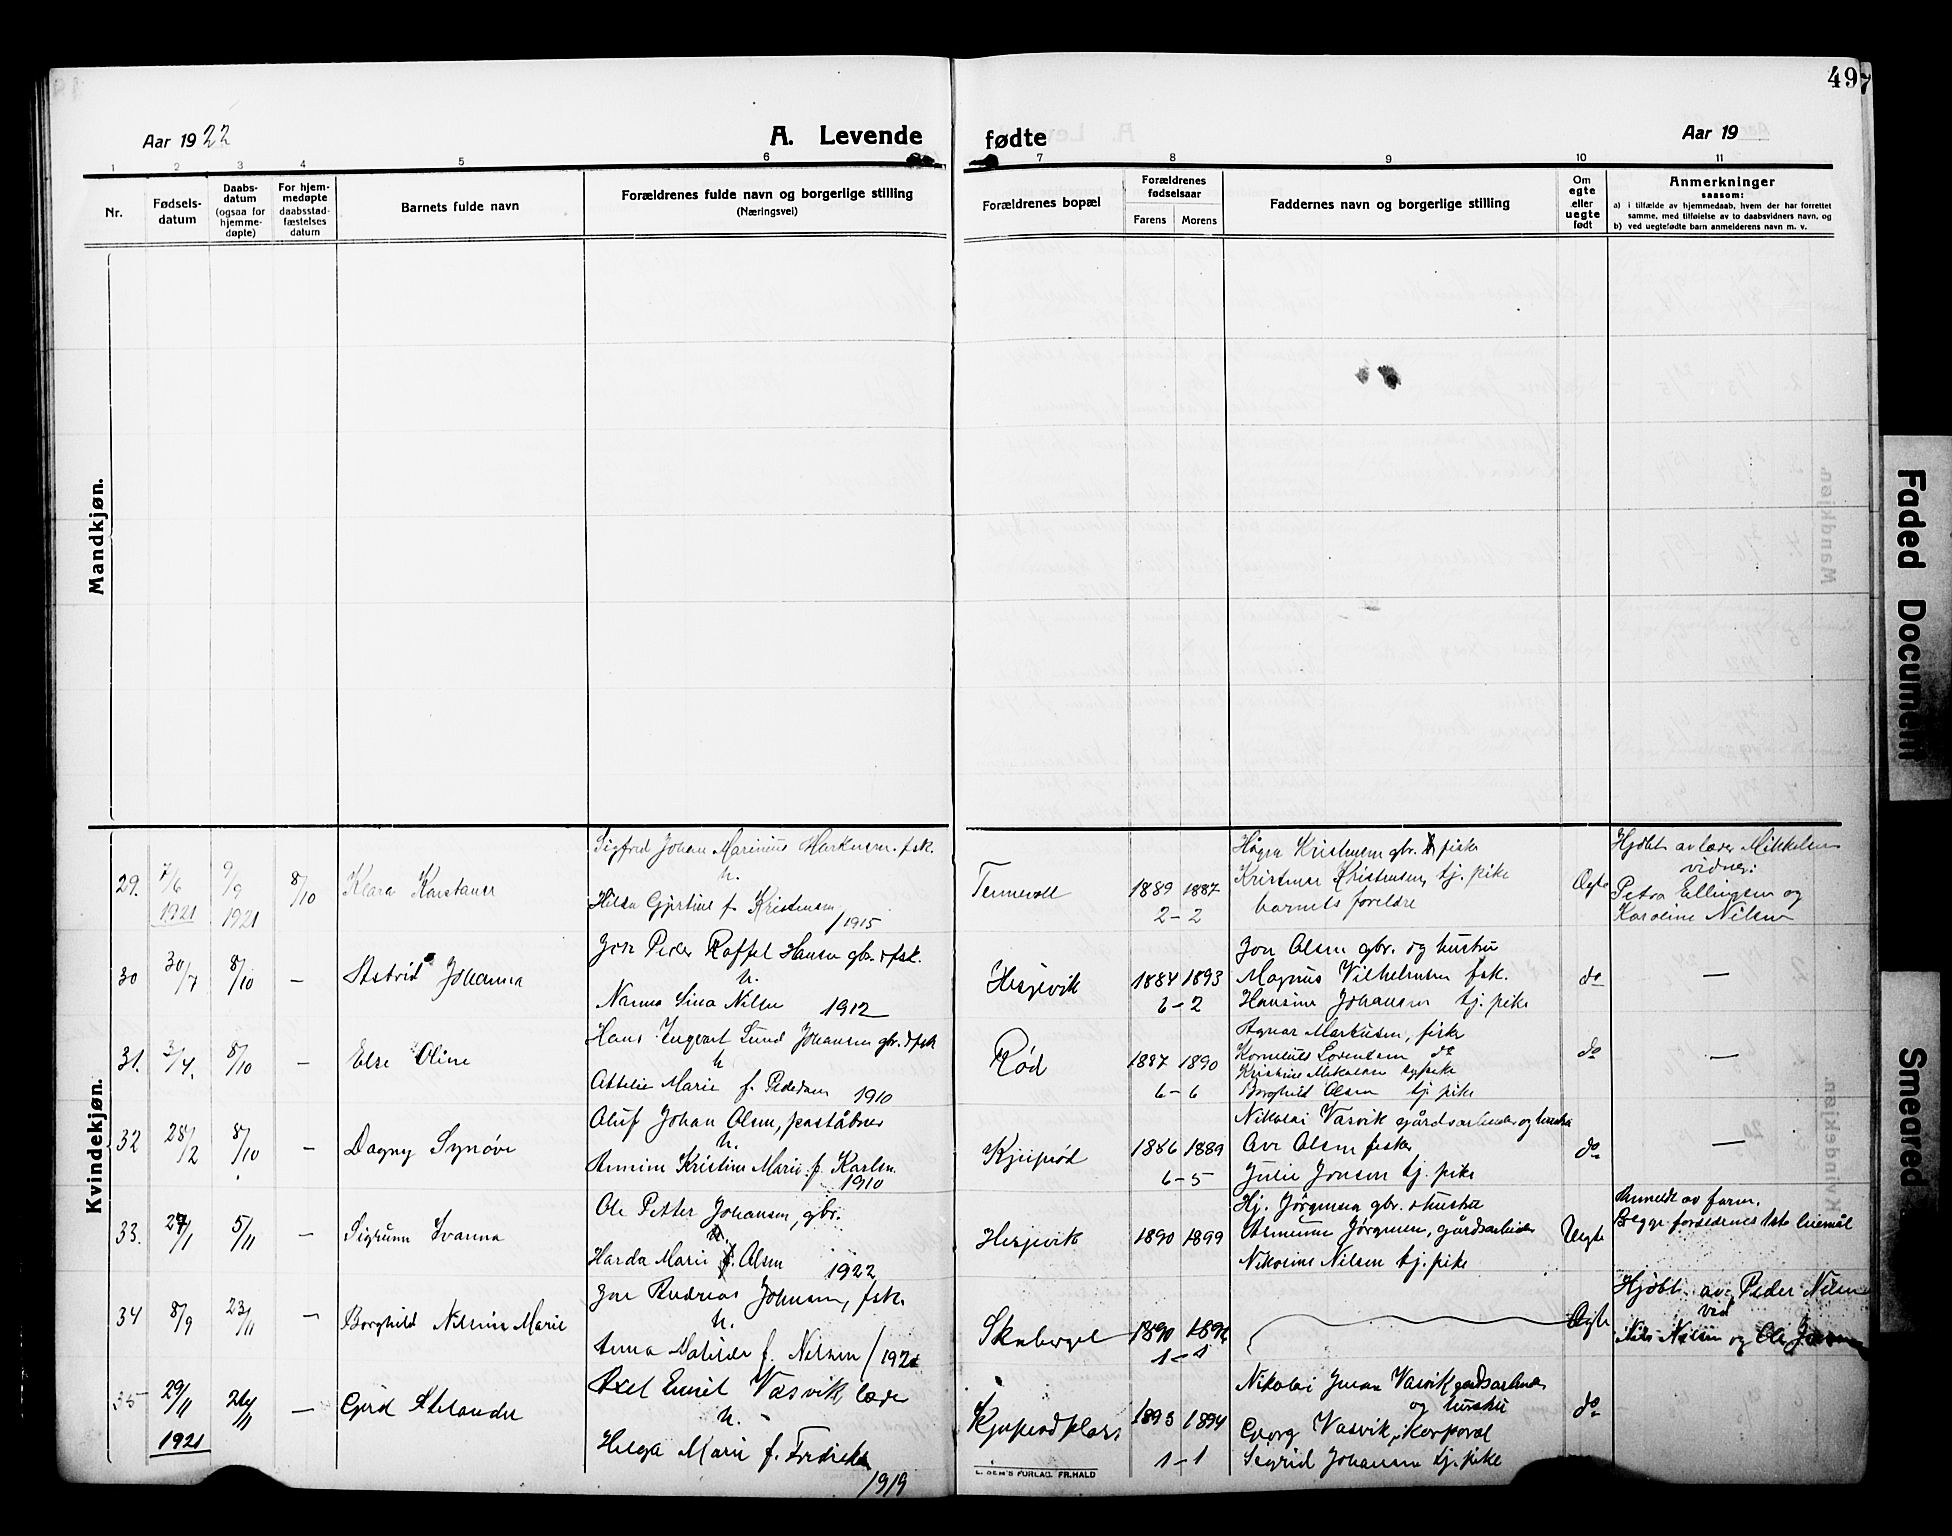 497
Aar 1922
A. Levende
fødte
Aar 19
1 2 3 4 5 6 7 8 9 10 11
Nr.
Fødsels-
datum
Daabs-
datum
(ogsaa for
hjemme-
døpte)
For hjem-
medøpte
daabsstad-
fæstelses
datum
Barnets fulde navn
Forældrenes fulde navn og borgerlige stilling
(Næringsvei)
Forældrenes bopæl
Forældrenes
fødselsaar
Farens Morens
Faddernes navn og borgerlige stilling
Om
egte
eller
uegte
født
Anmerkninger
saasom:
a) i tilfælde av hjemmedaab, hvem der har forrettet
samme, med tilføielse av to daabsvidners navn, og
b) ved uegtefødte barn anmelderens navn m. v.
Mandkjøn.
Kvindekjøn.
29. 7/6 1921 9/9 1921 8/10 Klara Konstanse
Sigfred Johan Marinius Markusen fsk.
h.
Hilda Gjertine f. Kristensen
1915
Tennevoll 1889 1887
2 - 2
Kristensen gbr. fisker
Kristine Kristensen, tj. pike
barnets foreldre
Ægte
Hjdbt av læder Mikkelsen
vidner:
Petra Ellingsen og
Karoline Nilsen
30 30/7 8/10 — Astrid Johanna
Jon Peder Roffel Hansen gbr. & fsk.
h.
Nanna Sina Nilsen 1912
Hesjevik 1884 1893
6 - 2
Jon Olsen gbr. og hustru
Magnus Vilhelmsen fsk.
Hansine Johansen tj. pike
do —
31. 3/4. 8/10 — Else Oline
Hans Ingvart Lund Johansen gbr. & fsk
h
Attelie Marie f. Pedersen 1910
Rød 1887 1890
6 - 6
Agnar Markusen, fisker
Kornelius Lorentsen do
Kristine Mikalsen tj. pike
Borghild Olsen tj. pike
do —
32 28/2 8/10 — Dagny Synøve
Oluf Johan Olsen, poståbner
h.
Annine Kristine Marie f. Karlsen
1910
Kjeiprød 1886 1889
6 - 5
Nikolai Vasvik gårdsarbeider og hustru
Ove Olsen fisker
Julie Jonsen tj. pike
do —
33. 27/1 5/11 — Sigrunn Ivanna
Ole Petter Johansen, gbr.
h.
Harda Marie f. Olsen 1922
Hesjevik 1890 1899
Hj. Jørgensen gbr. & hustru
Asmunn Jørgensen, gårdsarbeider
Nikoline Nilsen tj. pike
Uegte
Anmeldt av faren.
Begge foreldrenes 1ste leiemål
34 8/9 23/11 — Borghild Nelsine Marie
Jon Andreas Johnsen, fsk.
h.
Anna Matilde f. Nilsen / 1921
Skaberget 1890 1892
1 - 1
Ægte
Hjdbt. av Peder Nilsen
ved
Nils Nilsen og Ole
35 29/11 1921 26/11 — Gerd Atelander
Axel Emil Vasvik læder
h.
Helga Marie f. Fredriksen
1919
Kjeiprødplass 1893 1894
1 - 1
Nikolai Johan Vasvik gårdsarbeider
og hustru
Georg Vasvik, Korporal
Sigrid Johansen tj. pike
do
E. SEM'S FORLAG. FR.HALD
Faded Document
Smeared